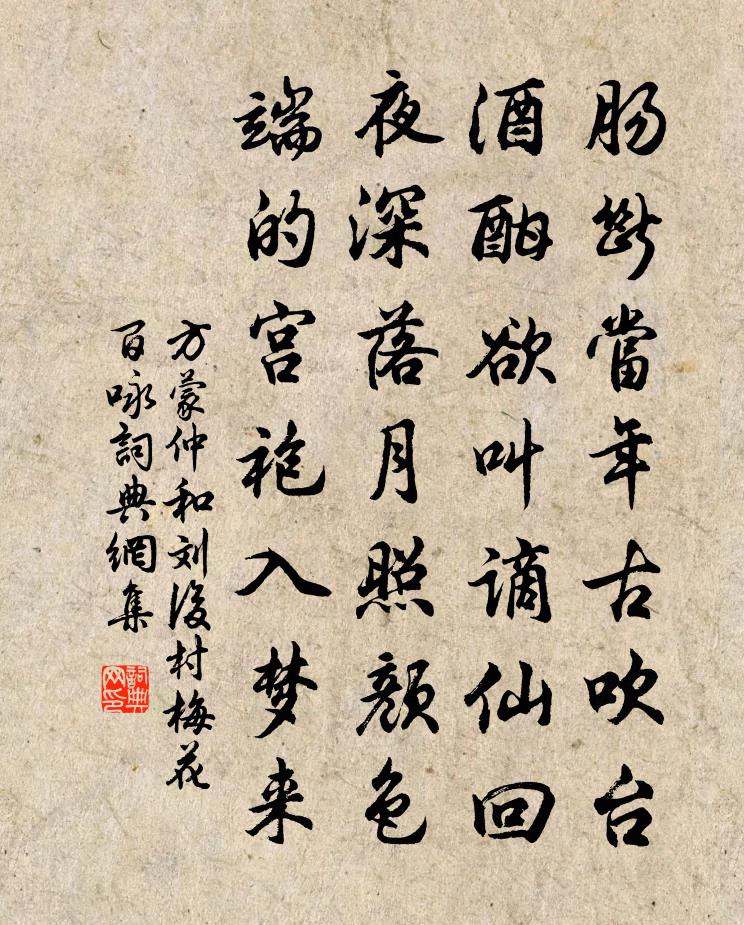 肠断當年古吹台
酒酣欲叫謫仙回
夜深落月照顔色
端的宫袍入梦来
方蒙仲和刘後村梅花
百咏詞典網集
詞典网印